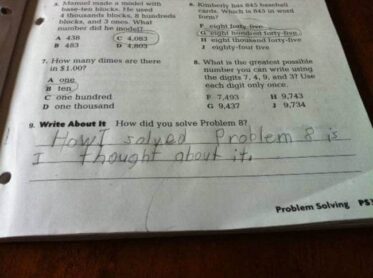 5. Manuel made a model with
base-ten blocks. He used
4 thousands blocks, 8 hundreds
blocks, and 3 ones. What
number did he model?
A 438 C 4,083
B 483 D 4,803
6. Kimberly has 845 baseball
cards. Which is 845 in word
form?
F eight forty-five
G eight hundred forty-five
H eight thousand forty-five
J eighty-four five
7. How many dimes are there
in $1.00?
A one
B ten
C one hundred
D one thousand
8. What is the greatest possible
number you can write using
the digits 7, 4, 9, and 3? Use
each digit only once.
F 7,493 H 9,743
G 9,437 J 9,734
9. Write About It How did you solve Problem 8?
How I solved Problem 8 is
I thought about it.
Problem Solving PS